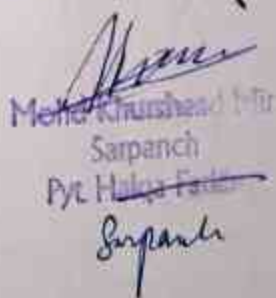 Mohd Khursheed Mir
Sarpanch
Pyt. Halqa
Sarpanch